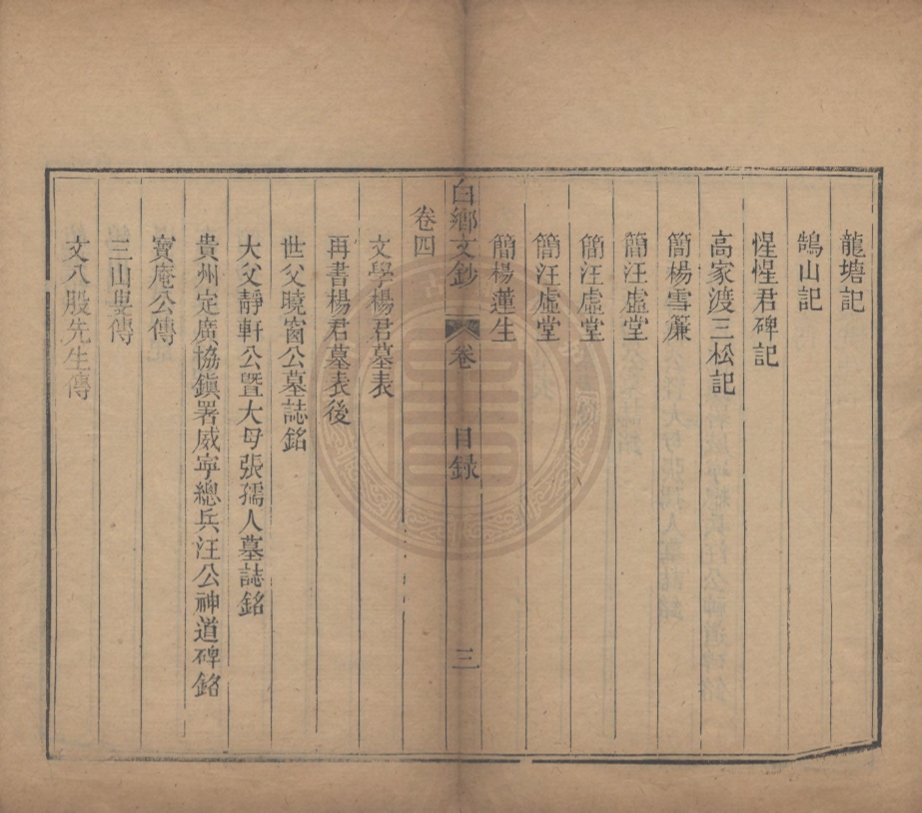 龍塘記
鵠山記
惺惺君碑記
高家渡三松記
簡楊雪簾
簡汪虛堂
簡汪虛堂
簡汪虛堂
簡楊蓮生
白鄉文鈔 卷 目录 三
卷四
文學楊君墓表
再書楊君墓表後
世父曉窗公墓誌銘
大父靜軒公暨大母張孺人墓誌銘
貴州定廣協鎮署威寧總兵汪公神道碑銘
寶庵公傳
三山叟傳
文八股先生傳